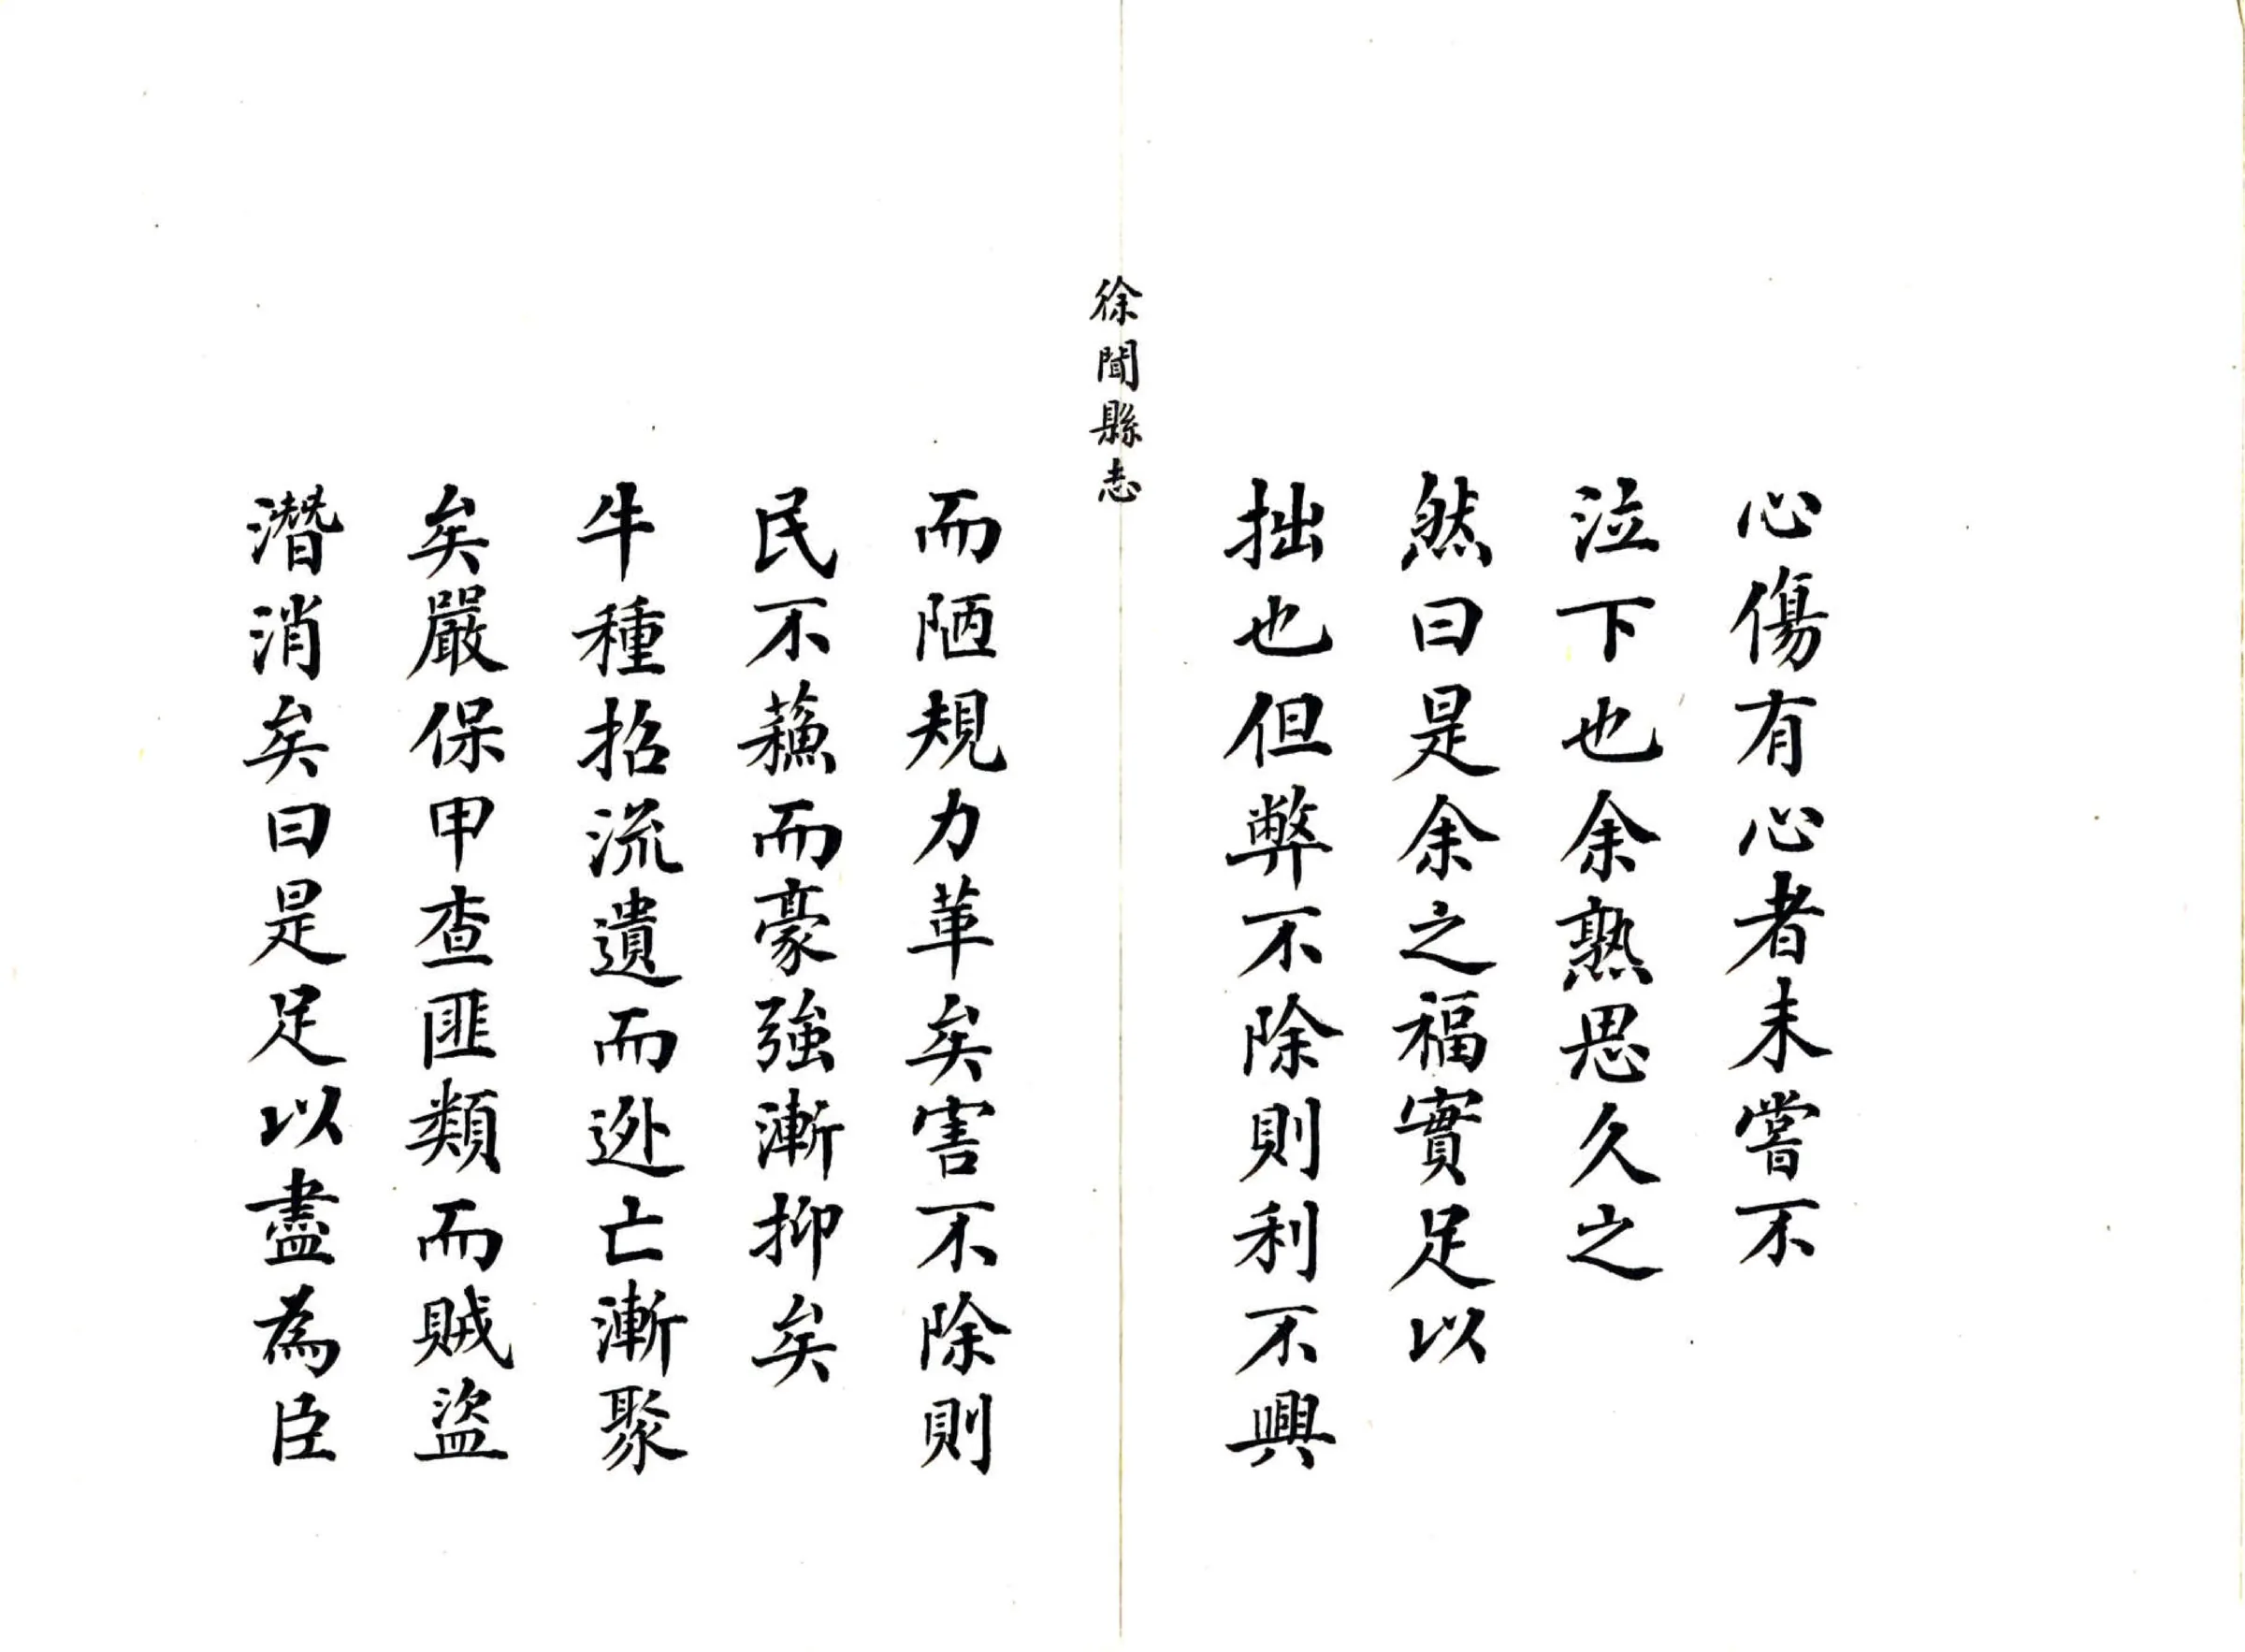 心傷有心者未嘗不
泣下也余熟思久之
然曰是余之福實足以
拙也但弊不除則利不興
徐聞縣志
而陋規力革矣害不除則
民不蘓而豪強漸抑矣
牛種招流遺而逊亡漸聚
矣嚴保甲查匪類而賊盜
潛消矣曰是足以盡為臣